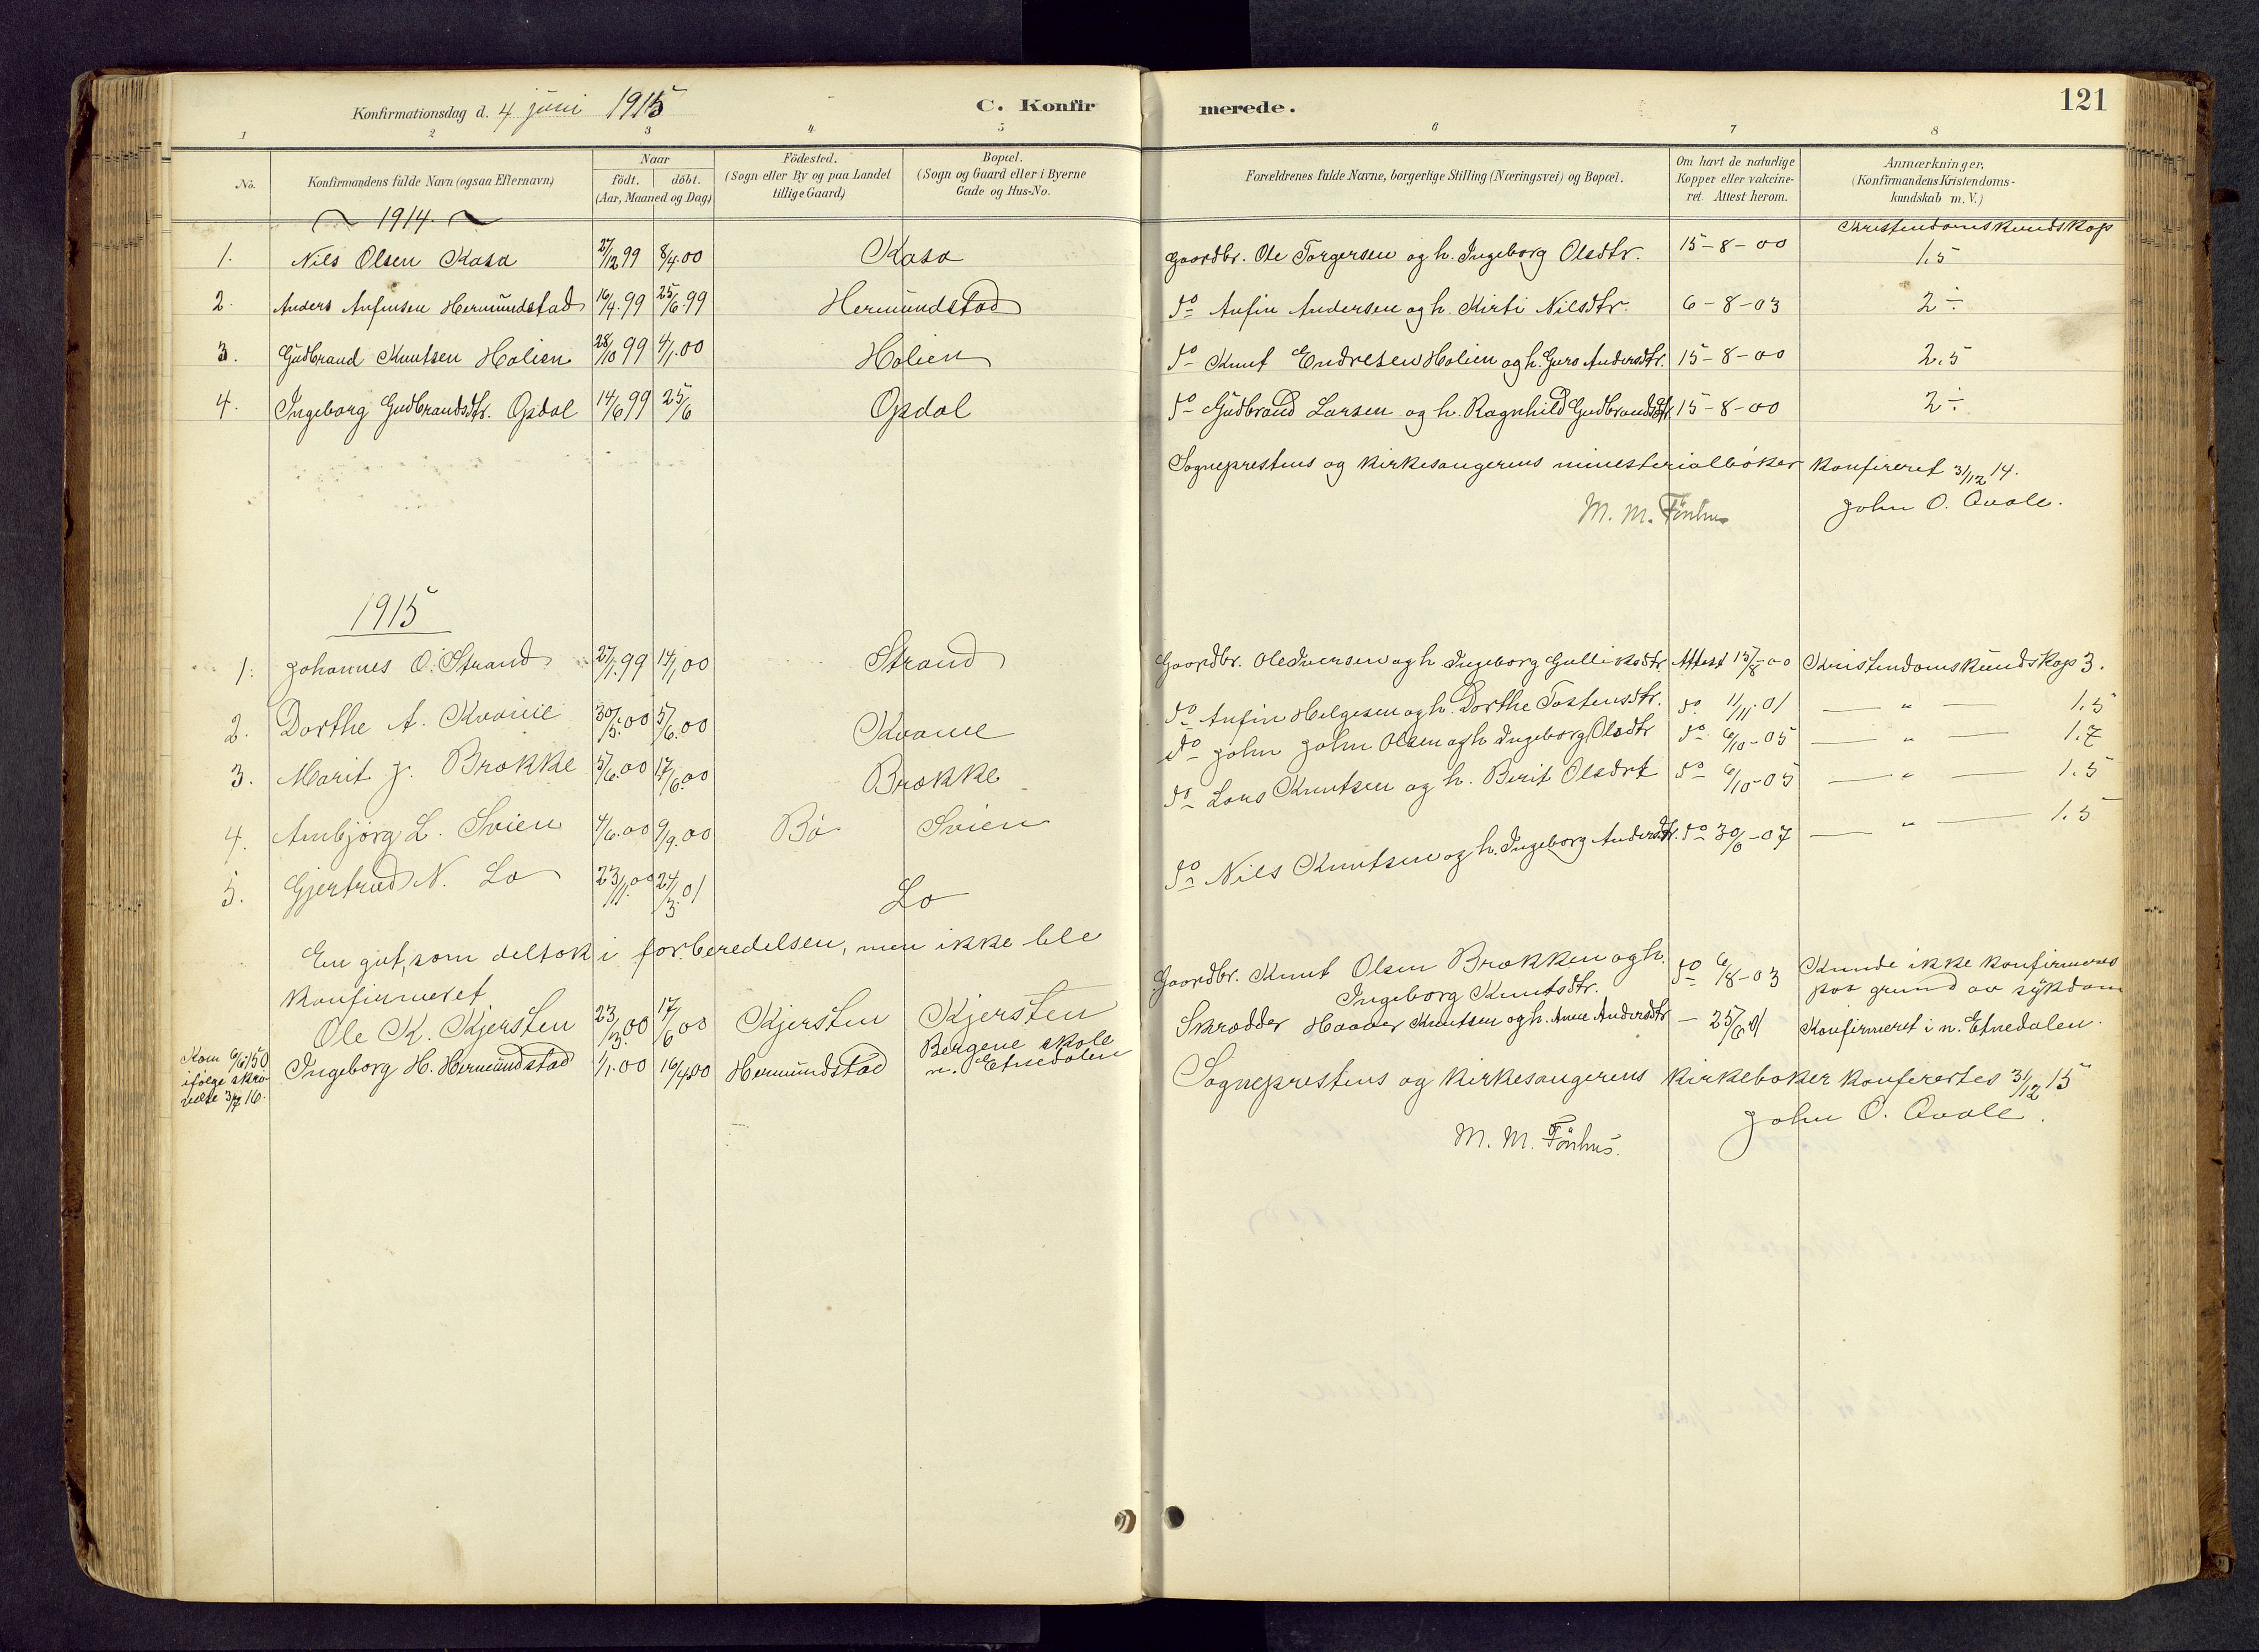 Konfirmationsdag d. 4 juni 1915
C. Konfirmerede.
121
1 2 3 4 5 6 7 8
No.
Konfirmandens fulde Navn (ogsaa Efternavn)
Naar
födt. döbt.
(Aar, Maaned og Dag)
Födested.
(Sogn eller By og paa Landet
tillige Gaard)
Bopæl.
(Sogn og Gaard eller i Byerne
Gade og Hus-No.
Forældrenes fulde Navne, borgerlige Stilling (Næringsvei) og Bopæl.
Om havt de naturlige
Kopper eller vakcine-
ret. Attest herom.
Anmærkninger.
(Konfirmandens Kristendoms-
kundskab m. V.)
1914.
Kristendomskundskap
1. Nils Olsen Kasa 27/12 99 8/4.00 Kasa Gaardbr. Ole Torgersen og h. Ingeborg Olsdtr. 15-8-00 1.5
2. Anders Anfinsen Hermundstad 16/4.99 25/6.99 Hermundstad do Anfin Andersen og h. Kirti Nilsdtr. 6-8-03 2 ÷
3. Gudbrand Knutsen Holien 28/10 99 4/1.00 Holien do Knut Endresen Holien og h. Guro Andersdtr. 15-8-00 2.5
4. Ingeborg Gudbrandsdtr. Opdal 14/6 99 25/6 Opdal do Gudbrand Larsen og h. Ragnhild Gudbrandsdtr. 15-8-00 2 ÷
Sogneprestens og kirkesangerens ministerialbøker konfireret 31/12 14.
M. M. Fönhus John O. Qvale.
1915
1. Johannes O. Strand 27/1.99 14/1 00 Strand Gaardbr. Ole Iversen og h Ingeborg Gulliksdtr. Attest 15/8-00 Kristendomskundskap 3.
2. Dorthe A. Kvame 30/5.00 5/6.00 Kvame do Anfin Helgesen og h. Dorthe Tostensdtr. do 11/11.01 — " — 1.5
3. Marit J. Brøkke 5/6.00 17/6.00 Brøkke do John John Olsen og h Ingeborg Olsdtr do 6/10-05 — " — 1.7
4. Ambjörg L. Svien 4/6.00 9/9.00 Bö Svien do Lars Knutsen og h. Berit Olsdtr do 6/10-05 — " — 1.5
5. Gjertrud N. Lo 23/11.00 24/3.01 Lo do Nils Knutsen og h. Ingeborg Andersdtr. do 30/6-07 — " — 1.5
En gut, som deltok i forberedelsen, men ikke ble
konfirmeret
Ole K. Kjersten 23/3.00 17/6 00 Kjersten Kjersten Gaardbr. Knut Olsen Brøkken og h. do 6/8-03 Kunde ikke konfirmeres
Ingeborg Knutsdtr. paa grund av sykdom
Kom 6/6 150
ifølge skri-
velse 3/7 16.
Ingeborg H. Hermundstad 1/1.00 16/4.00 Hermundstad Bergene skole
n. Etnedalen
Skrædder Haaver Knutsen og h. Anne Andersdtr — 25/6 01 Konfirmeret i n. Etnedalen.
Sogneprestens og kirkesangerens kirkebøker konferertes 31/12 15
M. M. Fönhus. John O. Qvale.